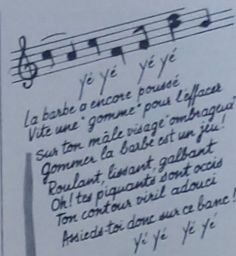 yé yé yé yé
La barbe a encore poussé
Vite une "gomme" pour l'effacer
Sur ton mâle visage ombrageux
Gommer la barbe est un jeu !
Roulant, lissant, galbant
Oh ! tes piquants sont occis
Ton contour viril adouci
Assieds-toi donc sur ce banc !
yé yé yé yé